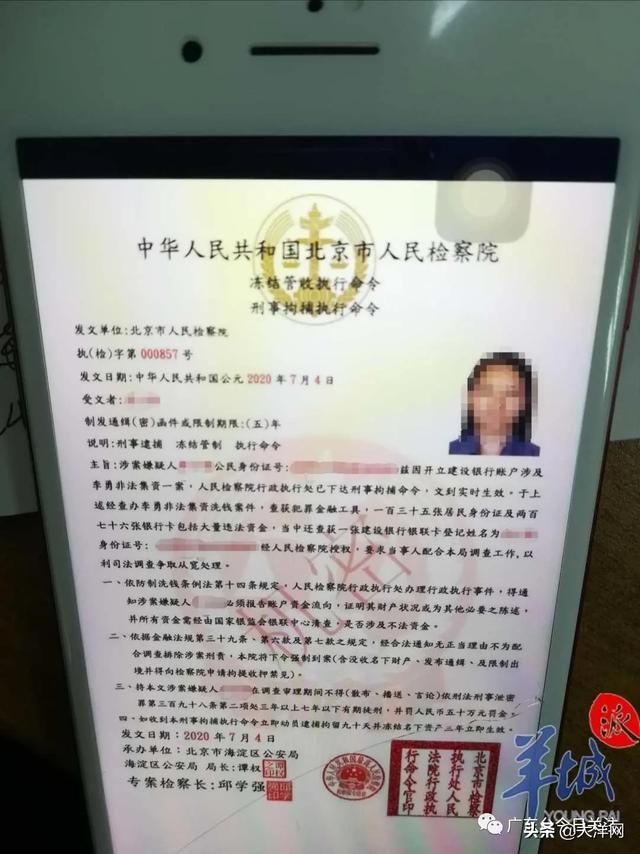 中华人民共和国北京市人民检察院
冻结管收执行命令
刑事拘捕执行命令
发文单位:北京市人民检察院
执(检)字第 000857 号
发文日期:中华人民共和国公元 2020 年 7 月 4 日
受文者:
制发通缉(密)函件或限制期限:(五)年
说明:刑事逮捕 冻结管制 执行命令
主旨:涉案嫌疑人 公民身份证号: 兹因开立建设银行账户涉及
李勇非法集资一案,人民检察院行政执行处已下达刑事拘捕命令,文到实时生效。于上
述经查办李勇非法集资洗钱案件,查获犯罪金融工具,一百三十五张居民身份证及两百
七十六张银行卡包括大量违法资金,当中还查获一张建设银行银联卡登记姓名为
身份证号: 经人民检察院授权,要求当事人配合本局调查工作,以
利司法调查争取从宽处理。
一、依防制洗钱条例法第十四条规定,人民检察院行政执行处办理行政执行事件,得通
知涉案嫌疑人 必须报告账户资金流向,证明其财产状况或为其他必要之陈述,
并所有资金需经由国家银监会银联中心清查,是否涉及不法资金。
二、依据金融法规第三十九条、第六款及第七款之规定,经合法通知无正当理由不为配
合调查排除涉案刑责,本院将下令强制到案(含没收名下财产、发布通缉、及限制出
境并得向检察院申请拘提收押禁见)。
三、持本文涉案嫌疑人 在调查审理期间不得(散布、播送、言论)依刑法刑事泄密
罪第三百九十八条第二项处三年以上七年以下有期徒刑,并罚人民币五十万元罚金。
四、如收到本刑事拘捕执行命令立即动员逮捕拘留九十天并冻结名下资产三年立即生效。
发文日期:2020 年 7 月 4 日
承办单位:北京市海淀区公安局
海淀区公安局 局长:谭权
专案检察长:邱学强
机密
北京市检察
执行处人民
法院行政执
行命令官印
派
羊城
YOUNG PAI
广东今日关注
头条@大洋网